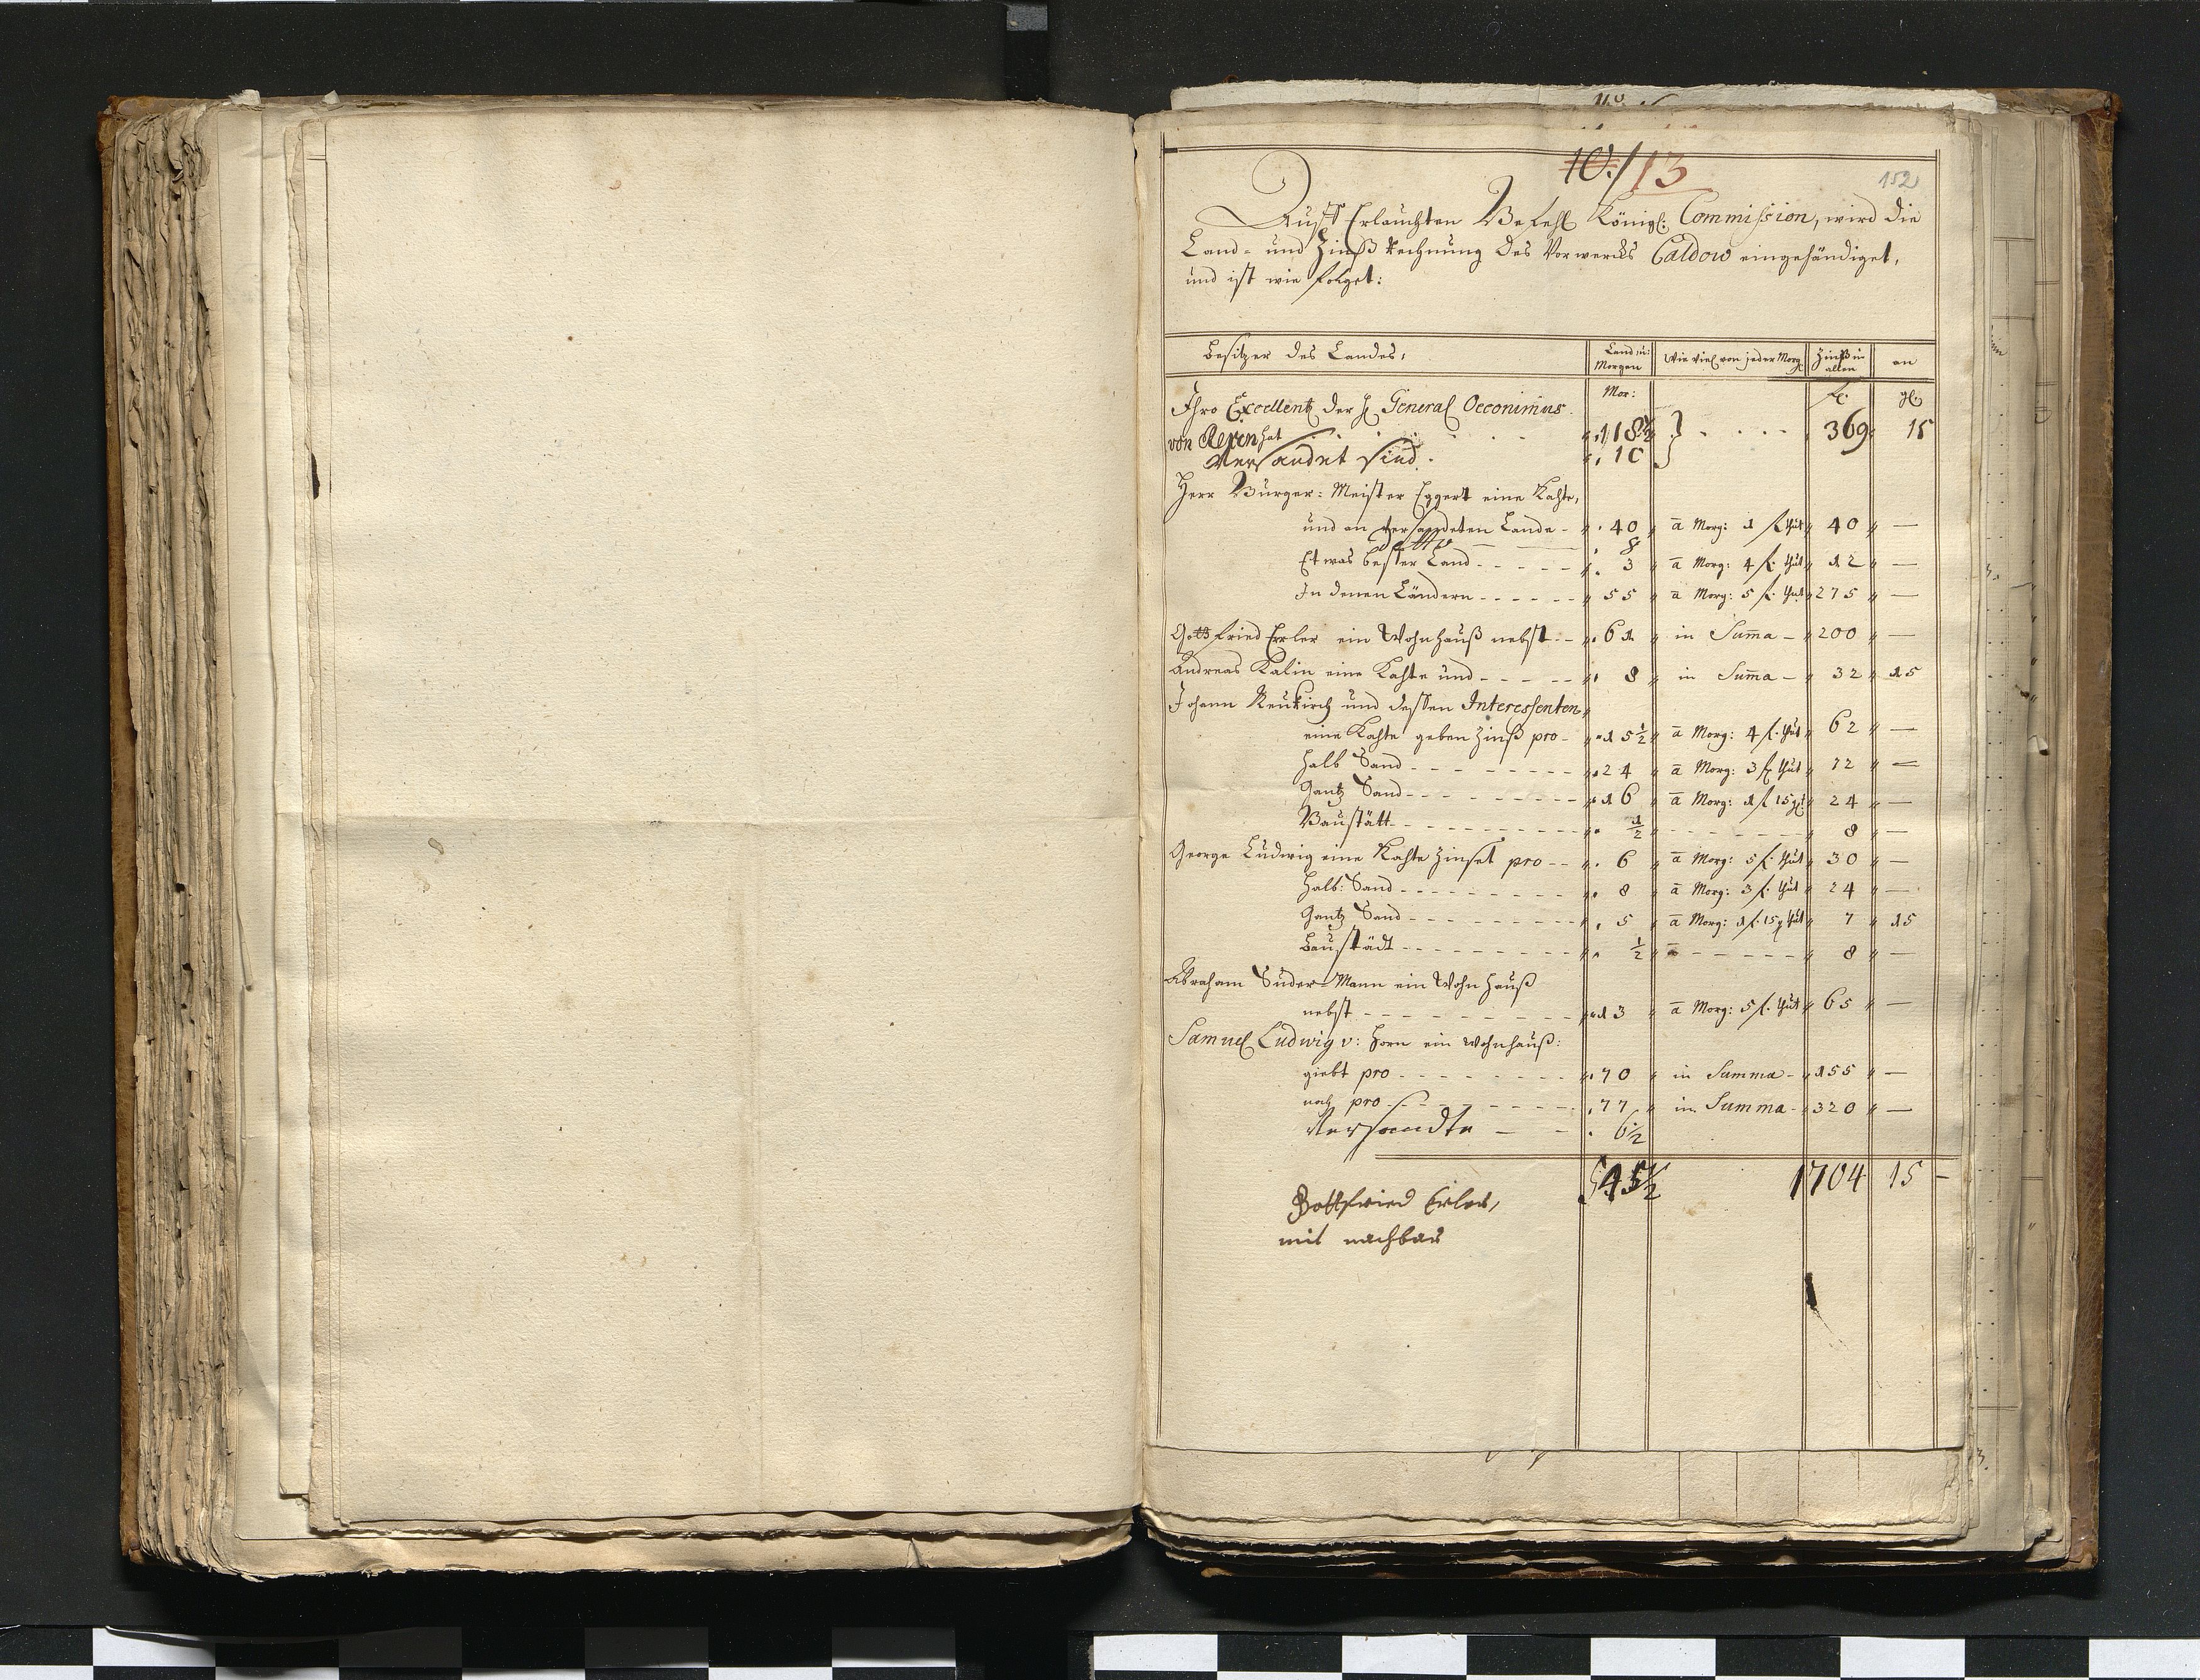 10./13
152
Auff Erlauchten Befehl Königl: Commission, wird die
Land- und Zinß Rechnung des Vorwercks Caldow eingehändiget,
und ist wie folget:
Besitzer des Landes, Land in Morgen Wie viel von jeder Morg Zinß in allen an
Mor: fl. gl:
Ihro Excellentz der H General Oeconimus
von Rexin hat 118½ } 369 15
Versandet sind. 10
Herr Bürger-Meister Eggert eine Kahte,
und an versandeten Lande - 40 a Morg: 1 f thut 40 —
detto 8
Etwas besser Land - - - 3 a Morg: 4 f. thut 12 —
In denen Ländern - - - 55 a Morg: 5 f. thut 275 —
Gottfried Erler ein Wohnhauß nebst - - 61 in Suma - 200 —
Andreas Kalin eine Kahte und - - - 8 in Suma - 32 15
Johann Neukirch und dessen Interessenten
eine Kahte geben Zinß pro - 15½ a Morg: 4 f. thut 62 —
Halb Sand - - - 24 a Morg: 3 f thut 72 —
Gantz Sand - - - 16 a Morg: 1 f 15 gl: 24 —
Baustätt - - - ½ - - - 8 —
George Ludwig eine Kahte Zinset pro - - 6 a Morg: 5 f. thut 30 —
Halb: Sand - - - 8 a Morg: 3 f. thut 24 —
Gantz Sand - - - 5 a Morg: 1 f. 15 g thut 7 15
Baustädt - - - ½ - - - 8 —
Abraham Suder-Mann ein Wohn Hauß
nebst - - - 13 a Morg: 5 f. thut 65 —
Samuel Ludwig v: Horn ein Wohnhauß:
giebt pro - - - 70 in Summa - 155 —
noch pro - - - 77 in Summa - 320 —
Versandte - - 6½
545½ 1704 15 -
Gottfried Erler,
mit nachbar